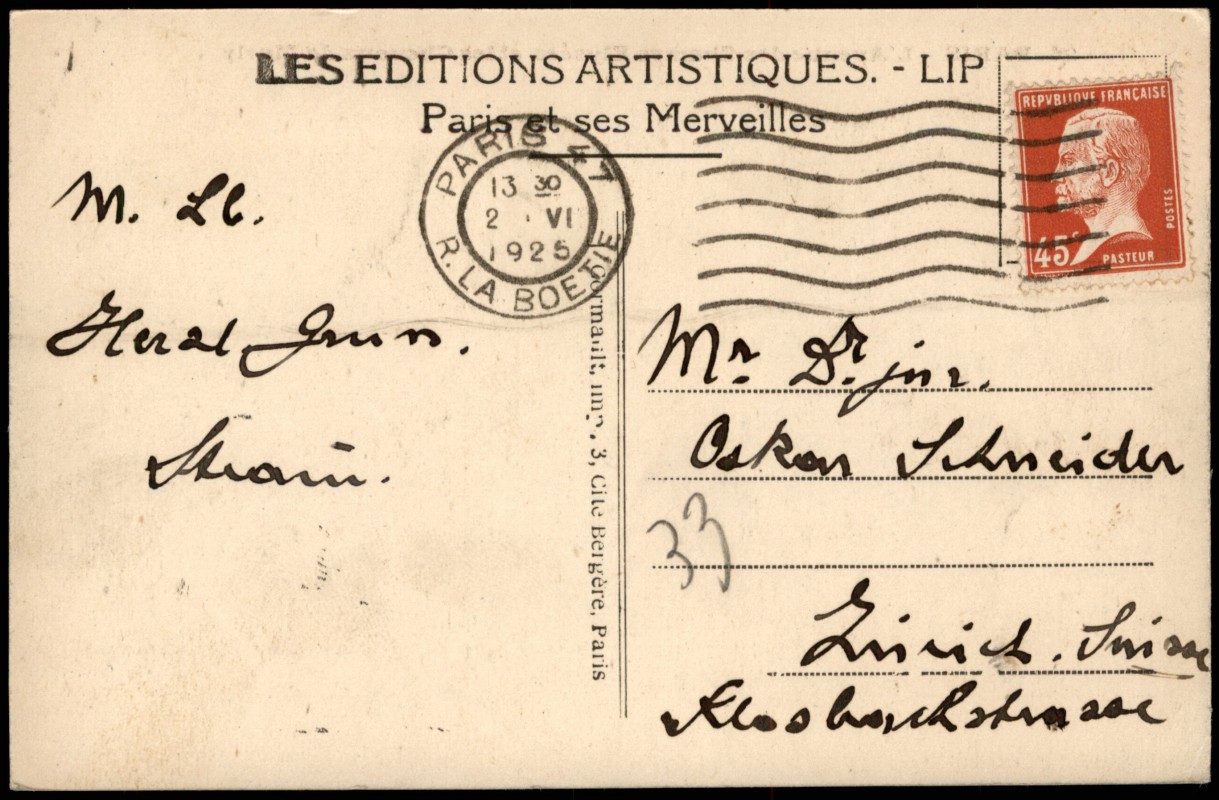 LES EDITIONS ARTISTIQUES. - LIP
Paris et ses Merveilles
PARIS 47
13 30
2 · VI
1925
R. LA BOETIE
REPVBLIQVE FRANÇAISE
POSTES
45c
PASTEUR
M. Lb.
Herzl. Gruss.
imp., 3, Cité Bergère, Paris
Mr. Dr. jur.
Oskar Schneider
33
Zürich. Suisse
Klosbachstrasse